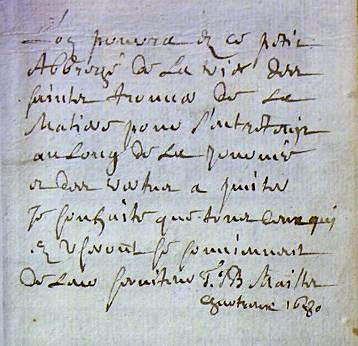 L'on pouvera ex ce petit
Abbrege de la vie des
saintes trouver de la
Matiere pour s'entretenir
au long de la journee
et des vertus a imiter
Je souhaite que tous ceux qui
se souviennent
de leur serviteur J B Maillet
1680